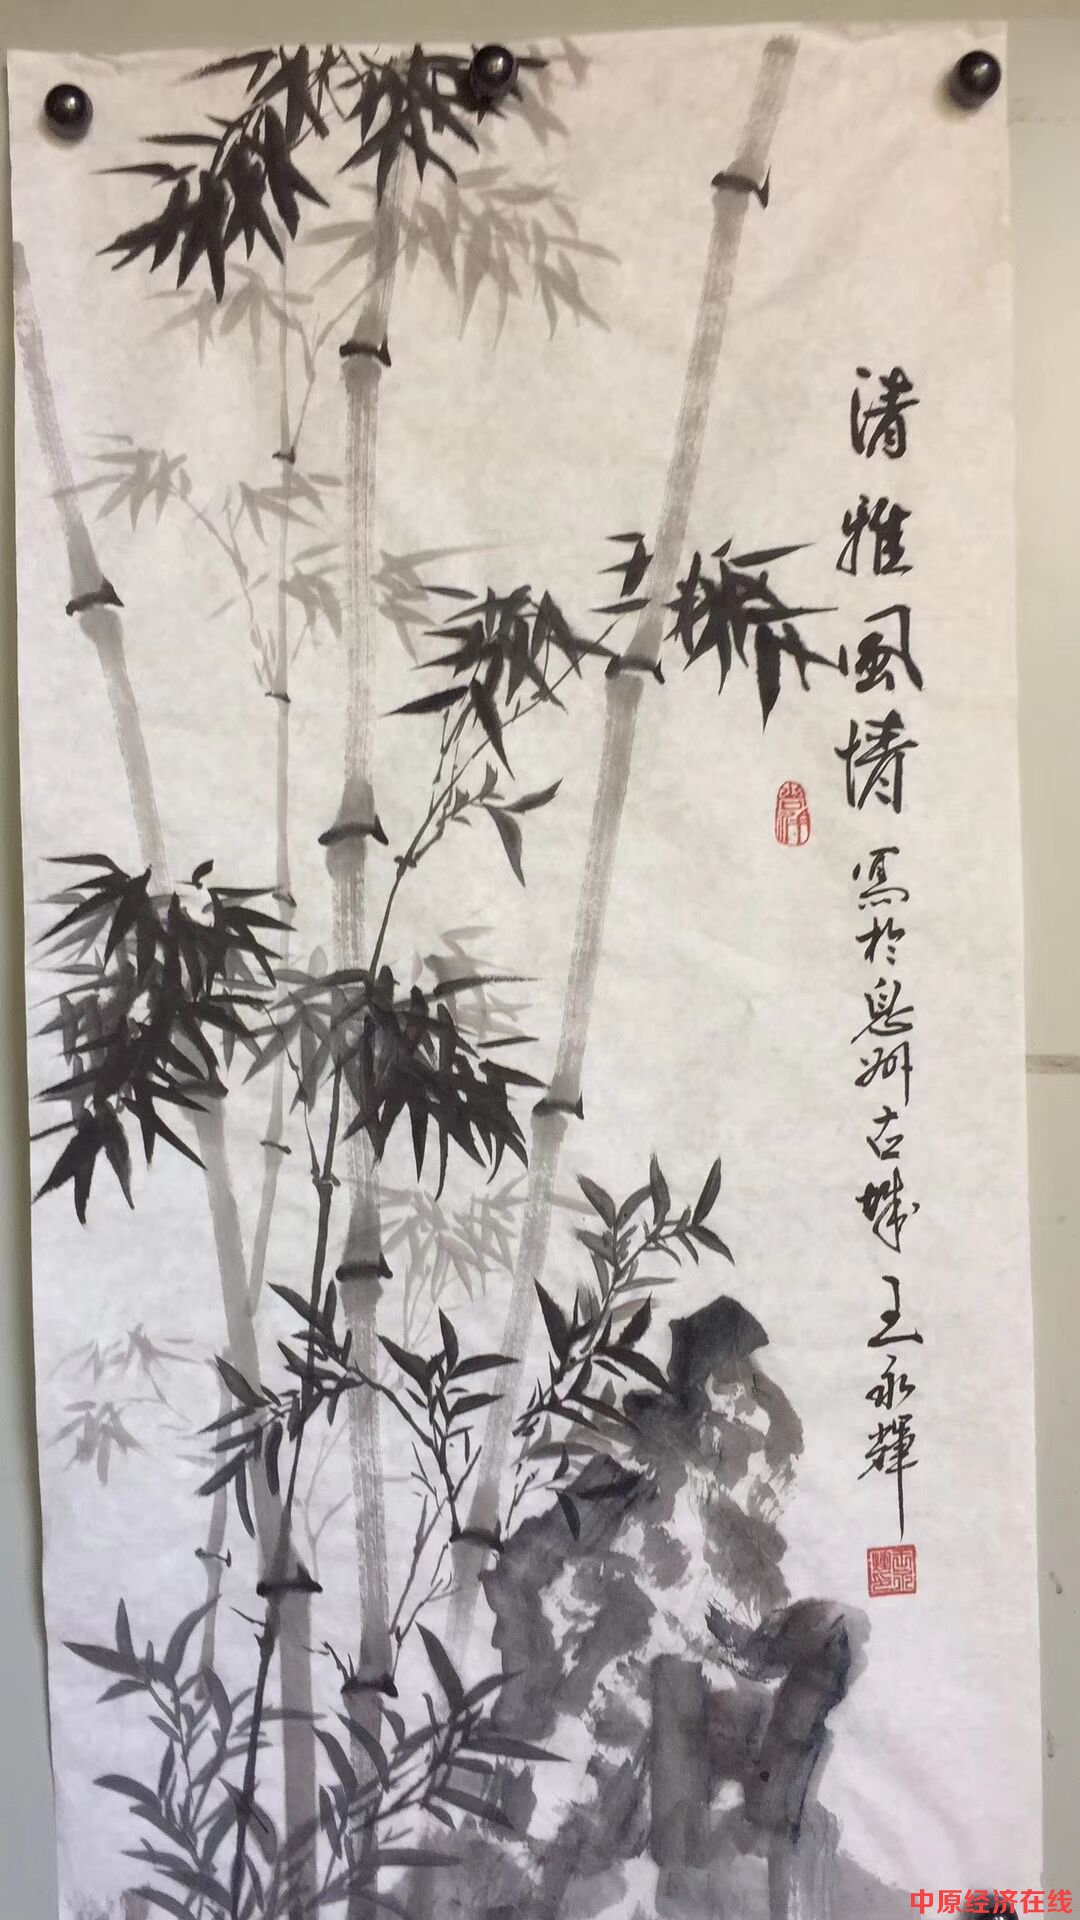 清雅風情 寫於息州古城 王永輝
中原经济在线